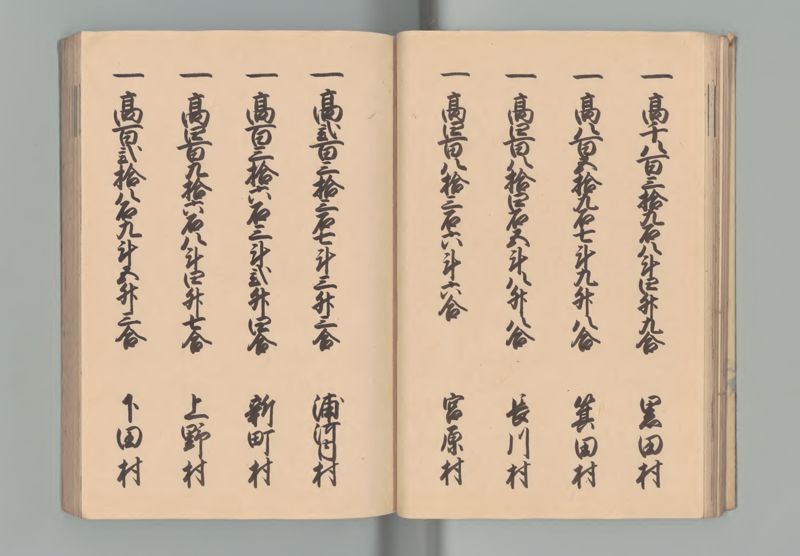 一 高千八百三拾九石八斗四升九合 黒田村
一 高八百五拾九石七斗九升八合 箕田村
一 高四百八拾四石五斗八升八合 長川村
一 高四百八拾三石六斗六合 宮原村
一 高弐百三拾三石七斗三升三合 浦河内村
一 高百三拾六石三斗弐升四合 新町村
一 高四百九拾六石八斗四升七合 上野村
一 高百弐拾八石九斗五升三合 下田村